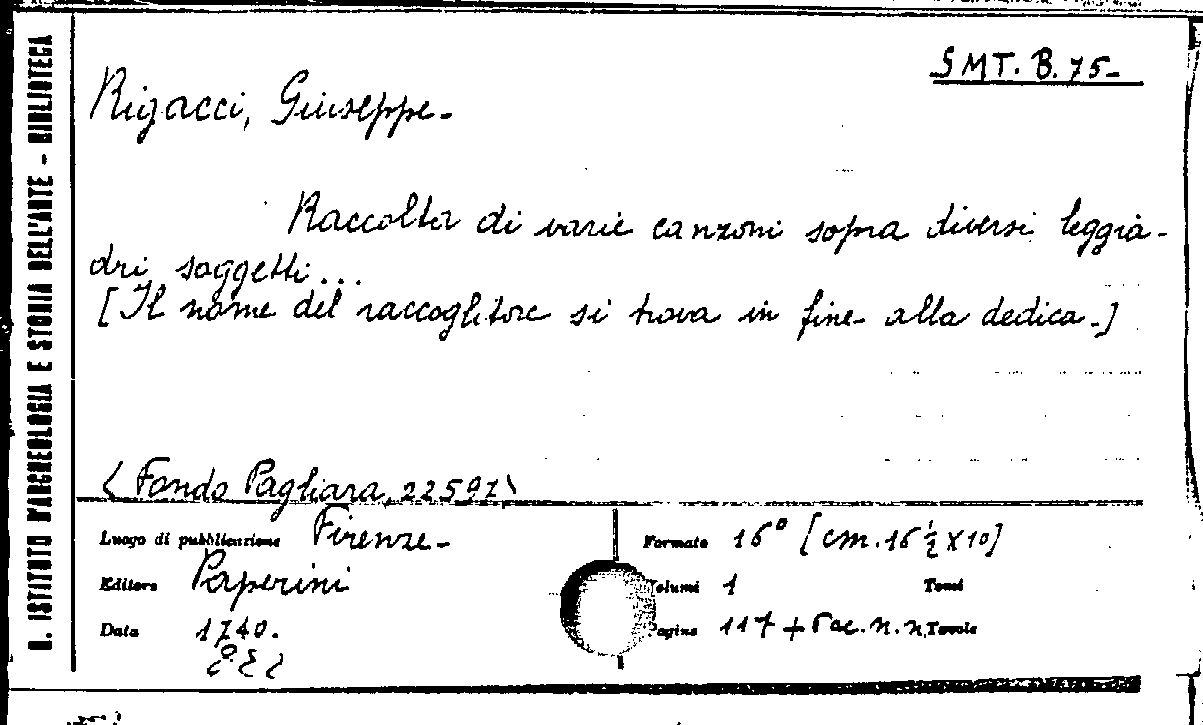 SMT. B. 75-
Rigacci, Giuseppe.-
Raccolta di varie canzoni sopra diversi leggia-
dri soggetti...
[Il nome del raccoglitore si trova in fine alla dedica.]
R. ISTITUTO D'ARCHEOLOGIA E STORIA DELL'ARTE - BIBLIOTECA
(Fondo Pagliara, 22597)
Luogo di pubblicazione Firenze.-
Formato 16° [cm. 16 ½ X 10]
Editore Paperini
Volumi 1 Tomi
Data 1740.
Pagine 117 + n. n. Tavole